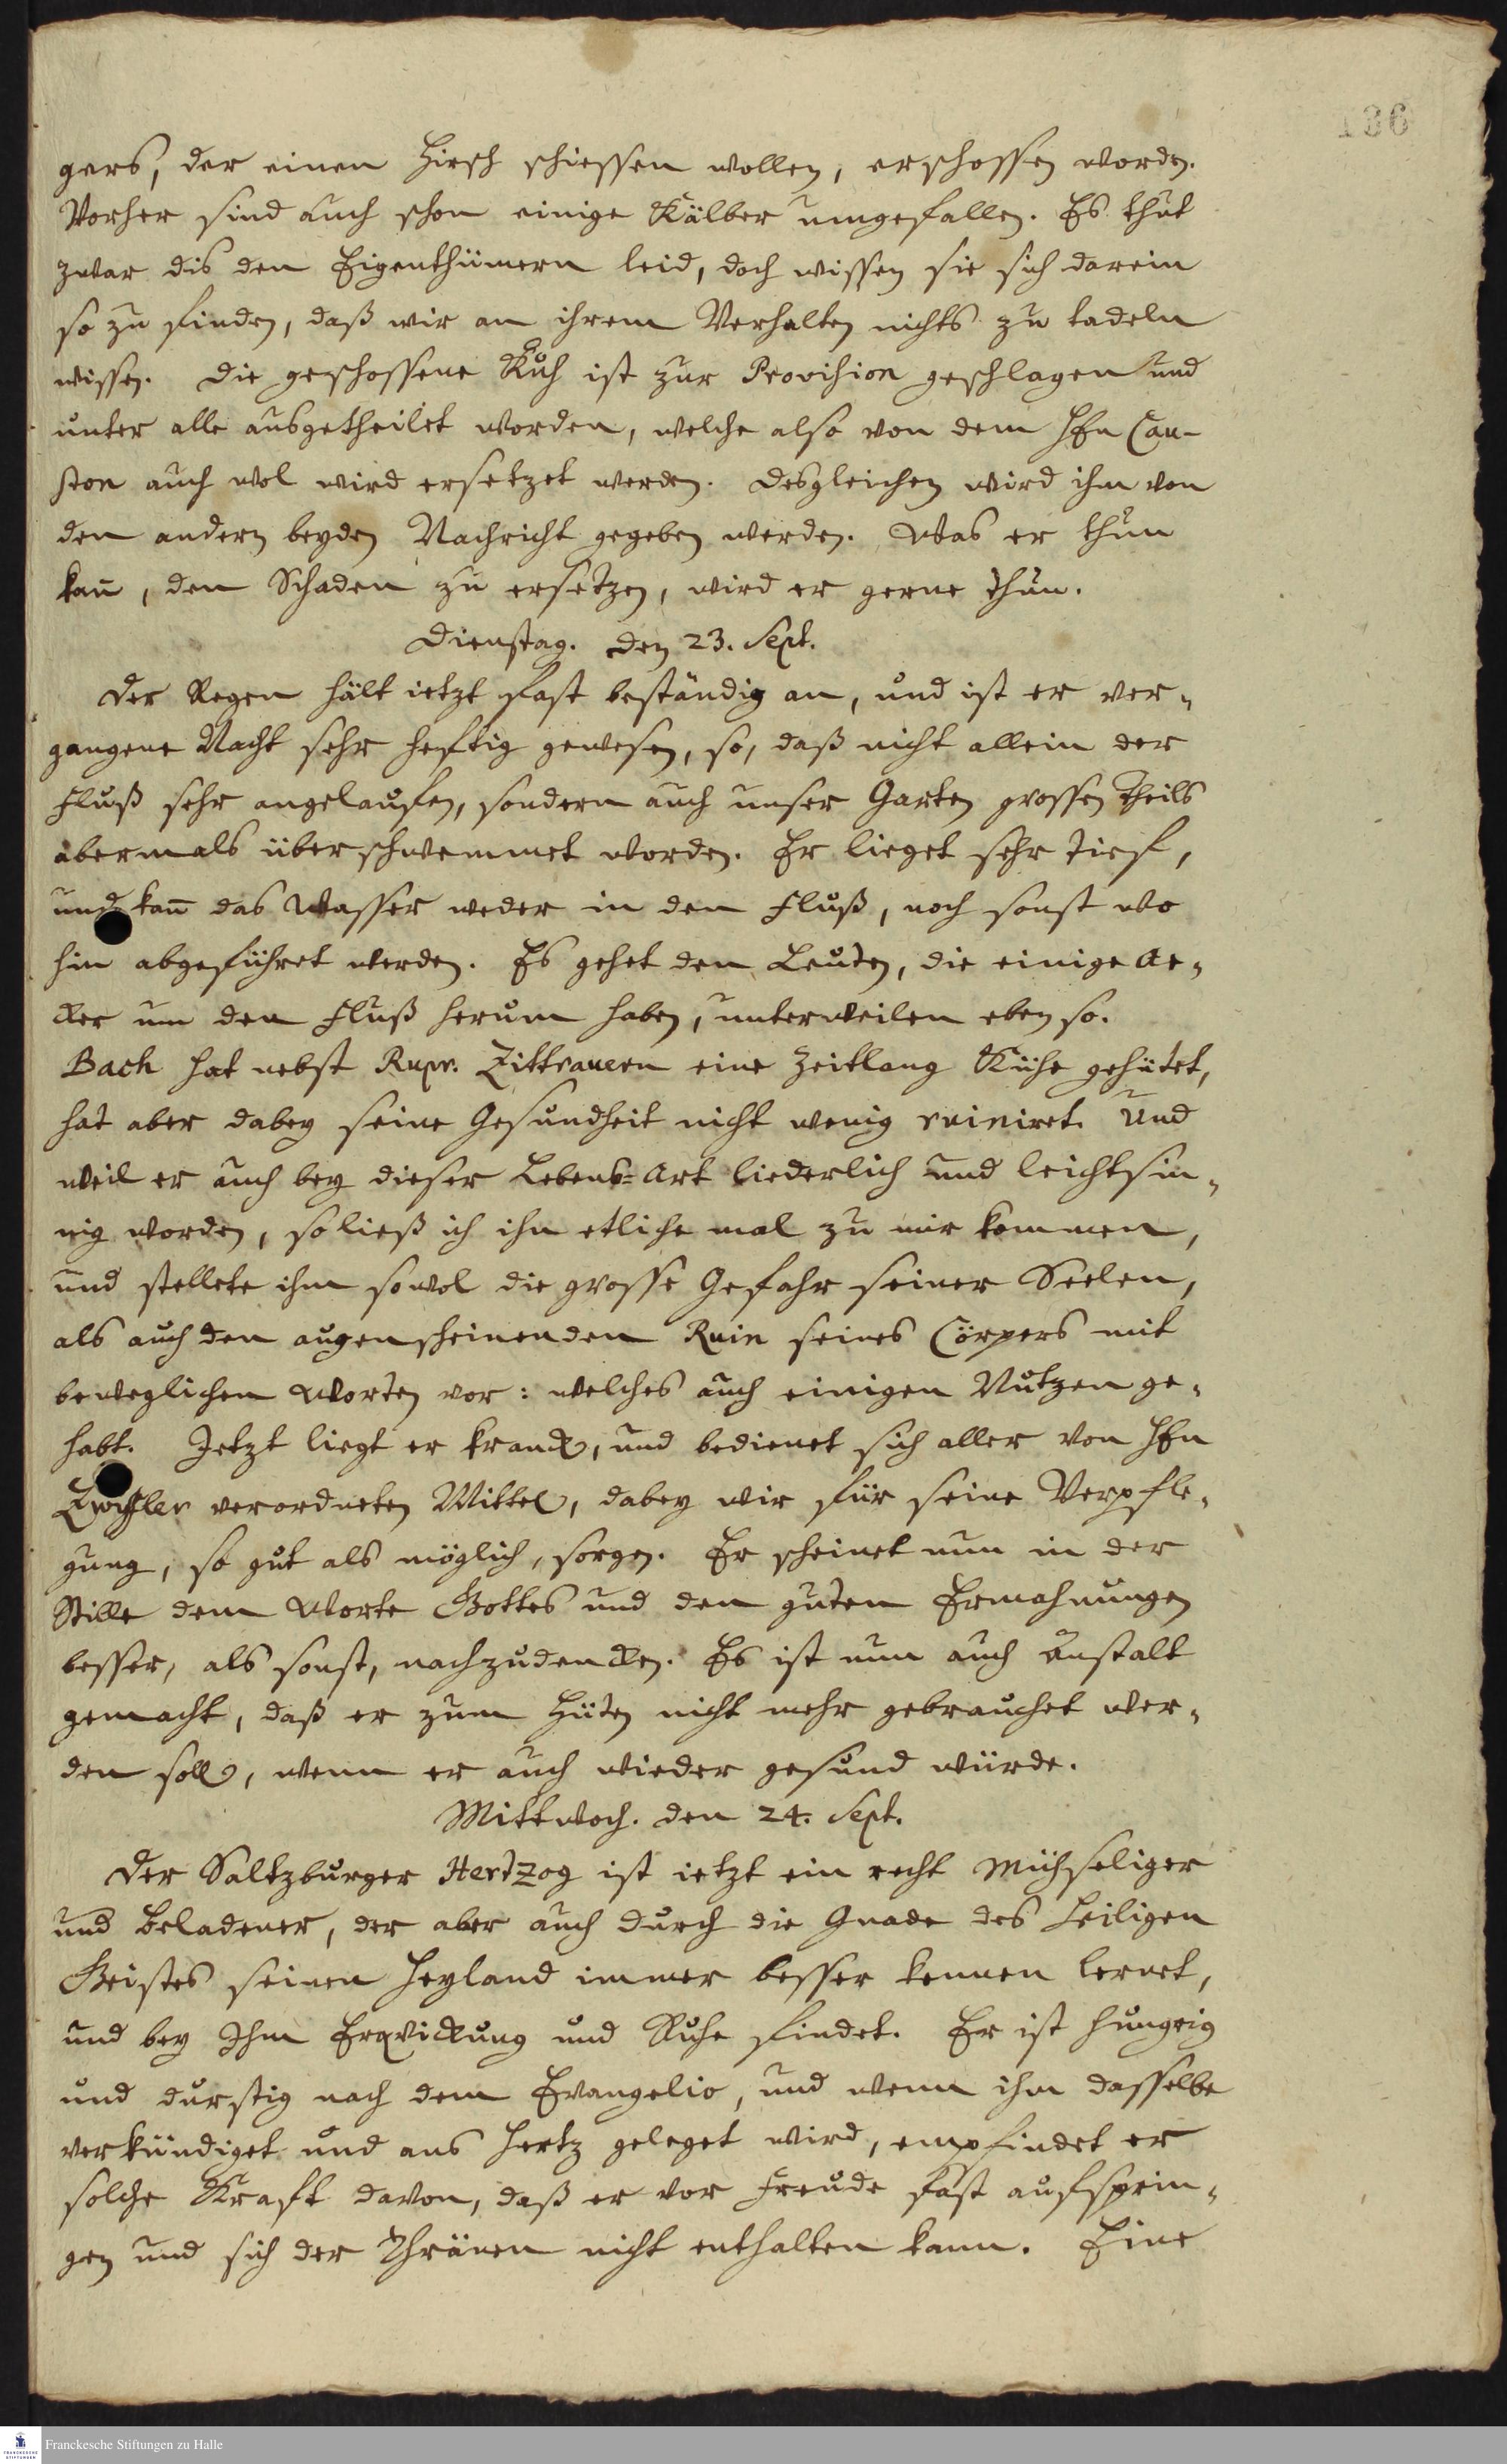 136
gers, der einen Hirsch schiessen wollen, erschossen worden.
Vorher sind auch schon einige Kälber umgefallen. Es thut
zwar dis den Eigenthümern leid, doch wissen sie sich darein
so zu finden, daß wir an ihrem Verhalten nichts zu tadeln
wissen. Die geschossene Kuh ist zur Provision geschlagen und
unter alle ausgetheilet worden, welche also von dem HEn Cau-
ston auch wol wird ersetzet werden. Desgleichen wird ihm von
den andern beyden Nachricht gegeben werden. Was er thun
kañ, den Schaden zu ersetzen, wird er gerne thun.
Dienstag. den 23. Sept.
Der Regen hält ietzt fast beständig an, und ist er ver-
gangene Nacht sehr heftig gewesen, so, daß nicht allein der
Fluß sehr angelaufen, sondern auch unser Garten grossen Theils
abermals überschwemmet worden. Er lieget sehr tief,
und kañ das Wasser weder in den Fluß, noch sonst wo
hin abgeführet werden. Es gehet den Leuten, die einige Ae-
cker um den Fluß herum haben, unterweilen eben so.
Bach hat nebst Rupr. Zittrauern eine Zeitlang Kühe gehütet,
hat aber dabey seine Gesundheit nicht wenig ruiniret. Und
weil er auch bey dieser Lebens-Art liederlich und leichtsin-
nig worden, so ließ ich ihn etliche mal zu mir kommen,
und stellete ihm sowol die grosse Gefahr seiner Seelen,
als auch den augenscheinenden Ruin seines Cörpers mit
beweglichen Worten vor: welches auch einigen Nutzen ge-
habt. Jetzt liegt er kranck, und bedienet sich aller von HEn
Zwifler verordneten Mittel, dabey wir für seine Verpfle-
gung, so gut als möglich, sorgen. Er scheinet nun in der
Stille dem Worte Gottes und den guten Ermahnungen
besser, als sonst, nachzudencken. Es ist nun auch Anstalt
gemacht, daß er zum Hüten nicht mehr gebrauchet wer-
den soll, wenn er auch wieder gesund würde.
Mittwoch. den 24. Sept.
Der Saltzburger Hertzog ist ietzt ein recht Mühseliger
und Beladener, der aber auch durch die Gnade des Heiligen
Geistes seinen Heyland immer besser kennen lernet,
und bey Ihm Erqvickung und Ruhe findet. Er ist hungrig
und durstig nach dem Evangelio, und wenn ihm dasselbe
verkündiget und ans Hertz geleget wird, empfindet er
solche Kraft davon, daß er vor Freude fast aufsprin-
gen und sich der Thränen nicht enthalten kann. Eine
Franckesche Stiftungen zu Halle